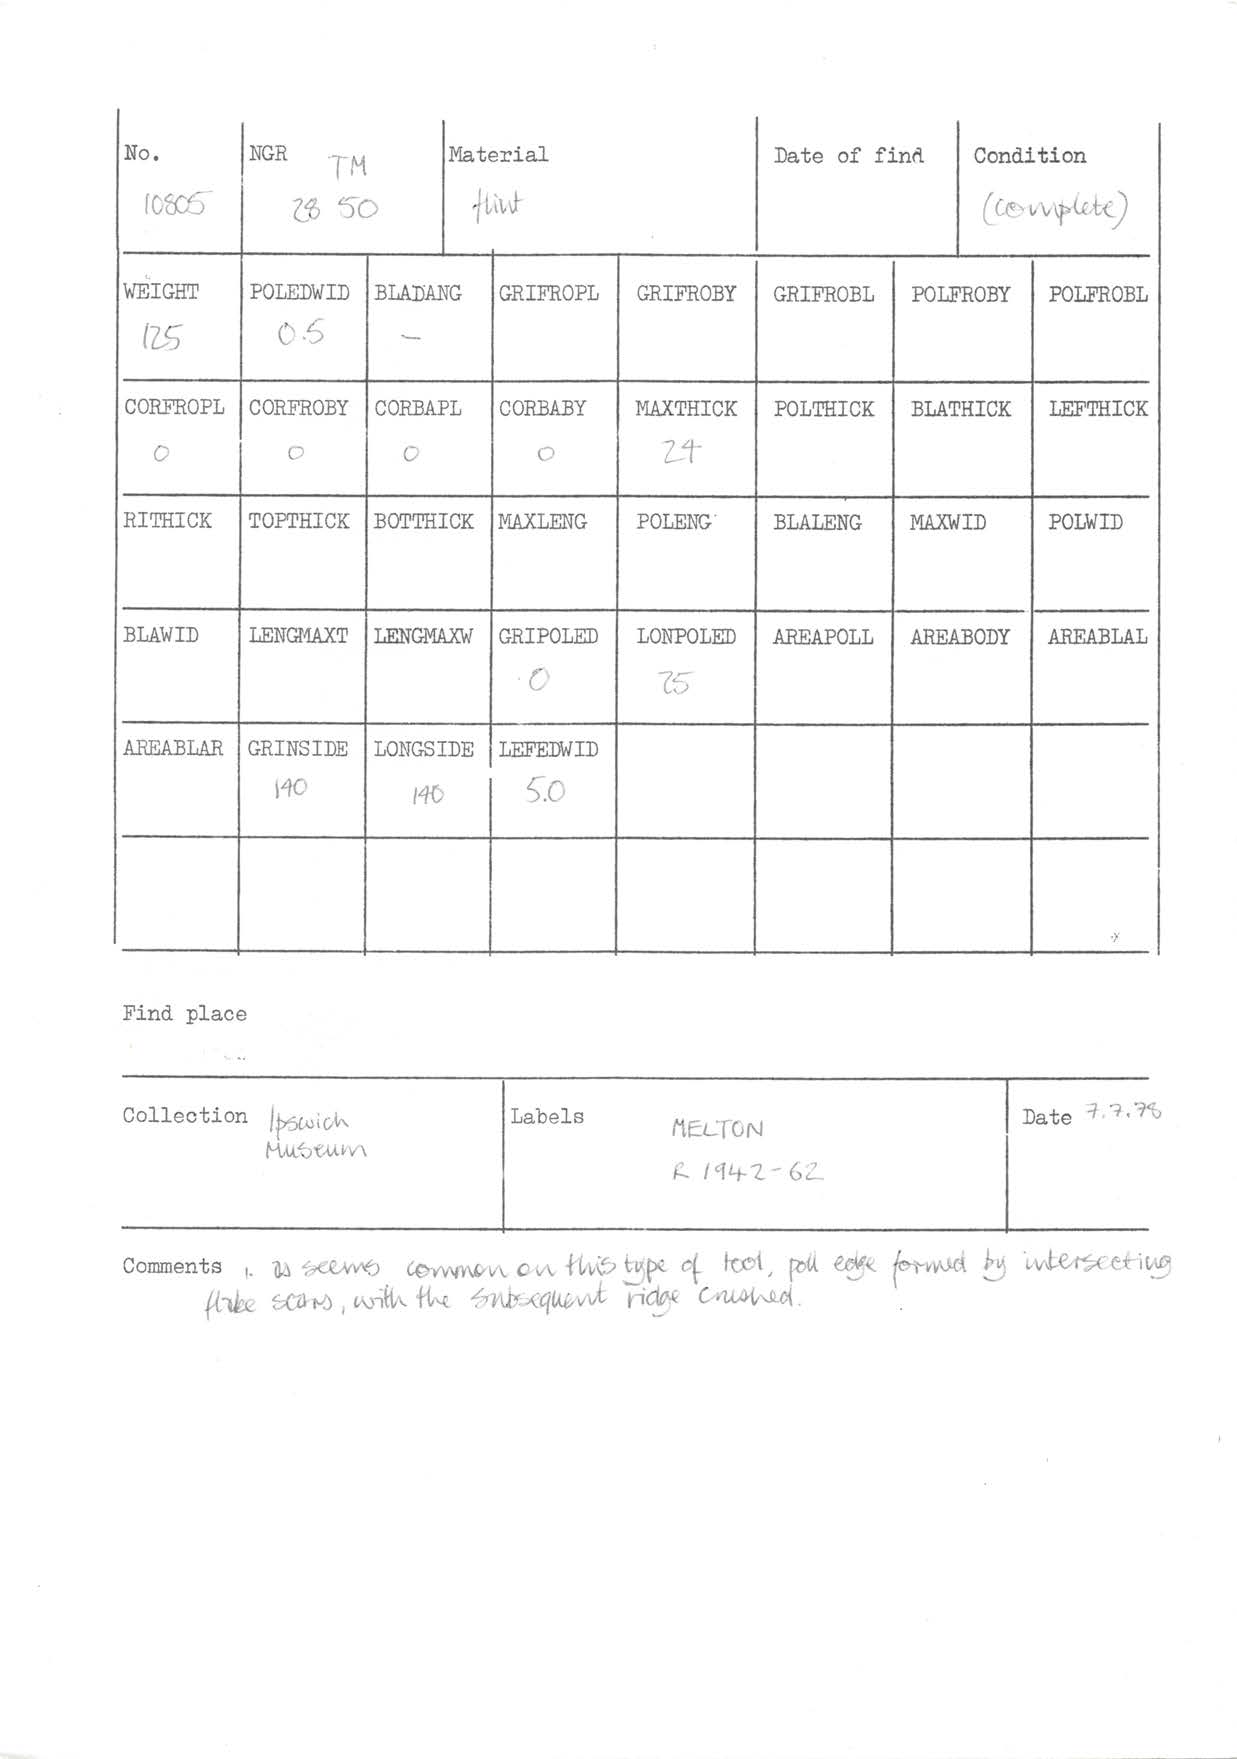 No. NGR TM Material Date of find Condition
10805 28 50 flint (complete)
WEIGHT POLEDWID BLADANG GRIFROPL GRIFROBY GRIFROBL POLFROBY POLFROBL
125 0.5 –
CORFROPL CORFROBY CORBAPL CORBABY MAXTHICK POLTHICK BLATHICK LEFTHICK
0 0 0 0 24
RITHICK TOPTHICK BOTTHICK MAXLENG POLENG BLALENG MAXWID POLWID
BLAWID LENGMAXT LENGMAXW GRIPOLED LONPOLED AREAPOLL AREABODY AREABLAL
0 25
AREABLAR GRINSIDE LONGSIDE LEFEDWID
140 140 5.0
Find place
Collection Ipswich Labels MELTON Date 7.7.78
Museum R 1942-62
Comments 1. as seems common on this type of tool, poll edge formed by intersecting
flake scars, with the subsequent ridge crushed.